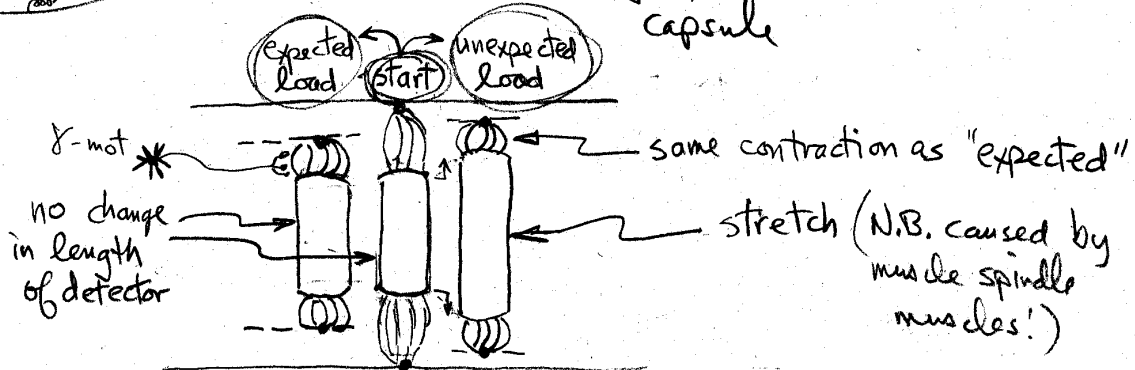 capsule
expected
load
start
unexpected
load
γ-mot
same contraction as "expected"
no change
in length
of detector
stretch (N.B. caused by
muscle spindle
muscles!)